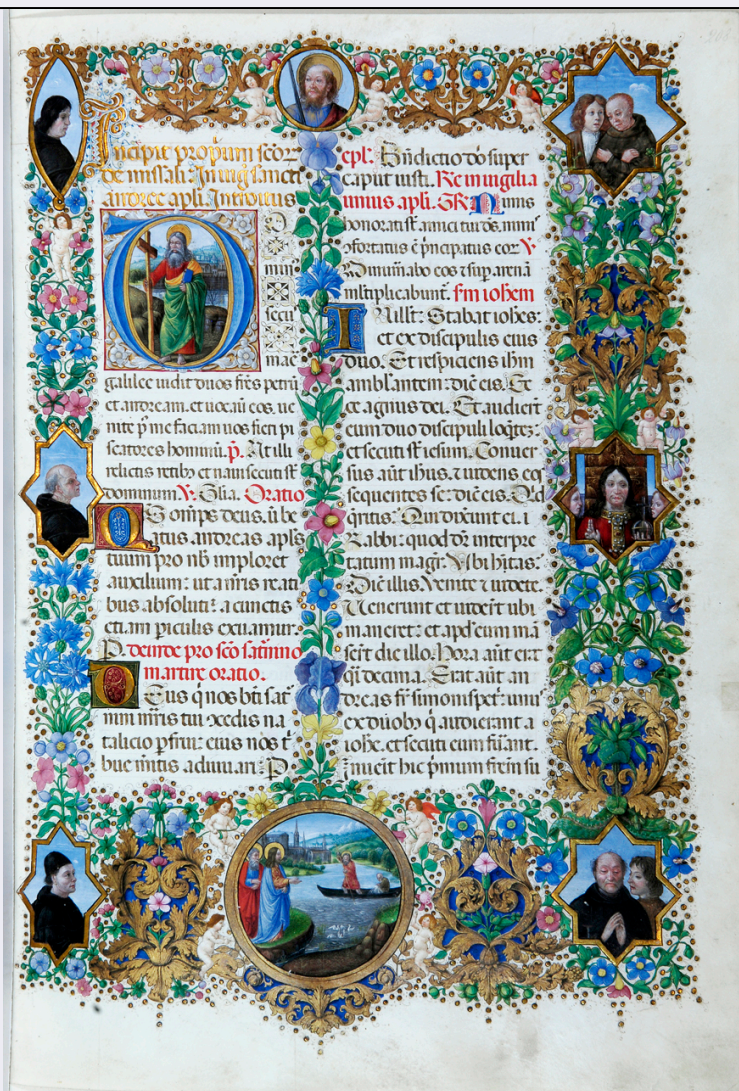 Incipit propriũ scõꝝ
de missali. In uig̃ sancti
andree apłi. Introitus
D
mi
secu
mare
galilee uidit duos fr̃es petrũ
et andream. et uocaũ eos. ue
nite p̃ me faciam uos fieri pi
scatores hominũ. p̃. At illi
relictis retib; et naui secuti st̃
dominum. V. Glia. Oratio
Q̃s om̃ps deus. ũ be
atus andreas apłs
tuum pro nb̃ imploret
auxilium: ut a nr̃is reati
bus absoluti: a cunctis
etiam ꝑiculis exuamur.
P. deinde pro sc̃o saturnino
martire oratio.
Deus q̃ nos bt̃i sat
nini mr̃is tui concedis na
talicio ꝑfrui: eius nos
bue mitis adiuuari: P
epł. Bñdictio dõ super
caput iusti. Re in uigilia
unius apłi. GR Nimis
honorati st̃ amici tui ds. nimis
ofortatus ẽ p̃ncipatus eoꝝ V.
Dinum̃abo eos ⁊ suꝑ arenã
mltiplicabunt. scd̃m iohem
IN illo t̃. Stabat iohes:
et ex discipulis eius
duo. Et respiciens ihm
ambłantem: dic̃ eis. Ec
ce agnus dei. Et audier̃t
eum duo discipuli loq̃tez:
et secuti st̃ iesum. Conuer
sus aut̃ ihus. ⁊ uidens eos
sequentes se: dic̃ eis. Qd
q̃ritis: Qui dixerunt ei.
Rabbi: quod dr̃ interpre
tatum magr̃. Vbi hitas:
Dic̃ illis. Venite ⁊ uidete
Venerunt et uider̃t ubi
maneret: et apd̃ eum mã
ser̃t die illo. Hora aut̃ erat
q̃si decima. Erat aut̃ an
dreas fr̃ simonis pet̃: unus
ex duob; q̃ audierant a
iohe. et secuti eum fũant.
Inuẽit hic p̃mum fr̃em su